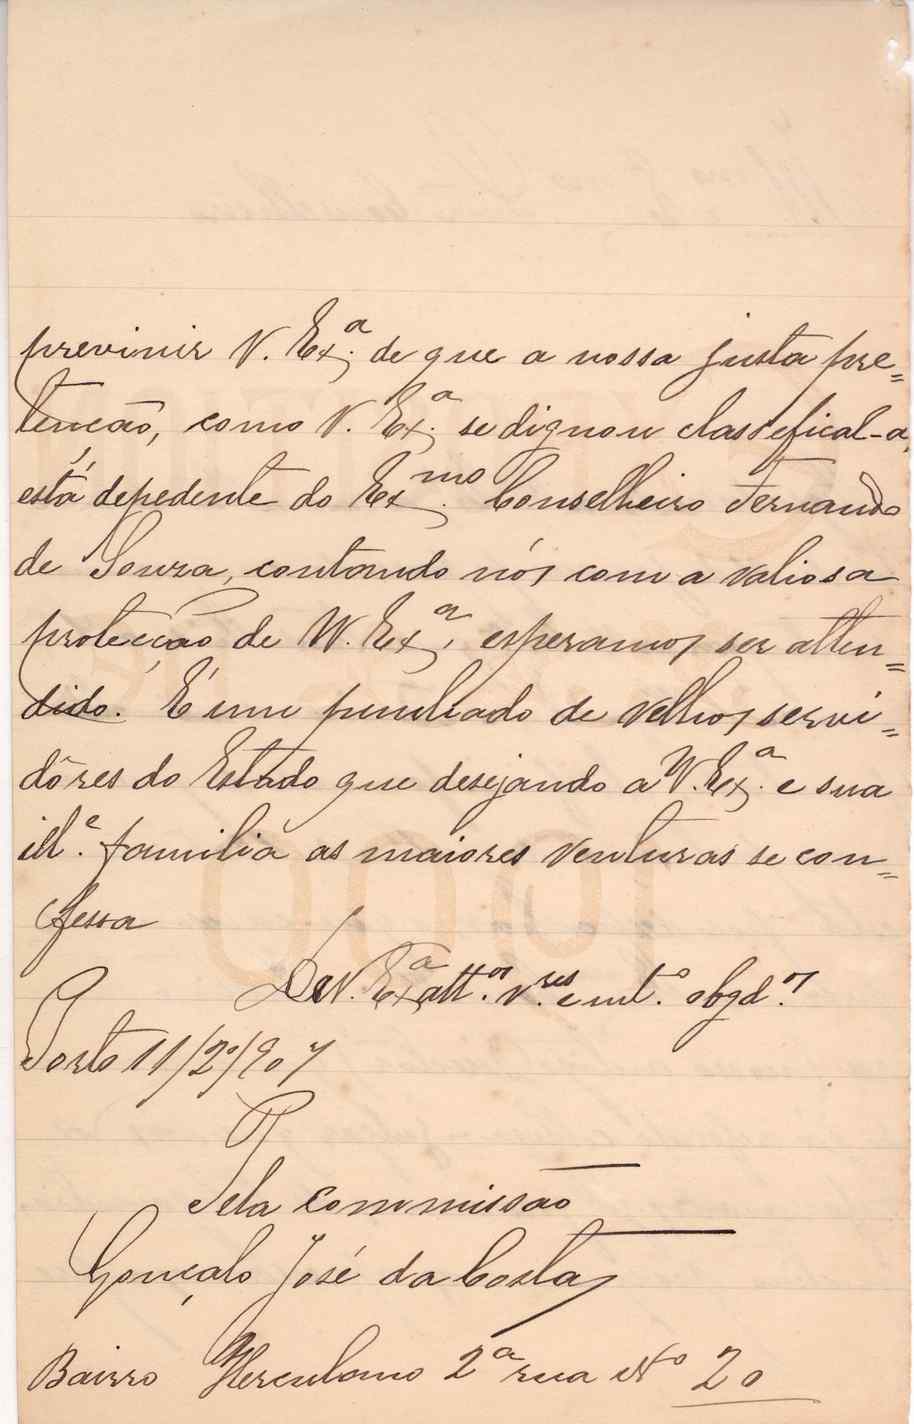 previnir V. Ex.ª de que a nossa justa pre=
tenção, como V. Ex.ª se dignou classefical-a,
está depedente do Ex.mo Conselheiro Fernando
de Souza, contando nós com a valiosa
protecção de V. Ex.ª, esperamos ser atten=
dido. É um punhado de velhos servi=
dôres do Estado que desejando a V. Ex.ª e sua
ill.e familia as maiores venturas se con=
fessa
De V. Ex.ª att.os v.res e mt.o obgd.os
Porto 11/2º/907
Pela commissão
Gonçalo José da Costa
Bairro Herculano 2ª rua Nº 20